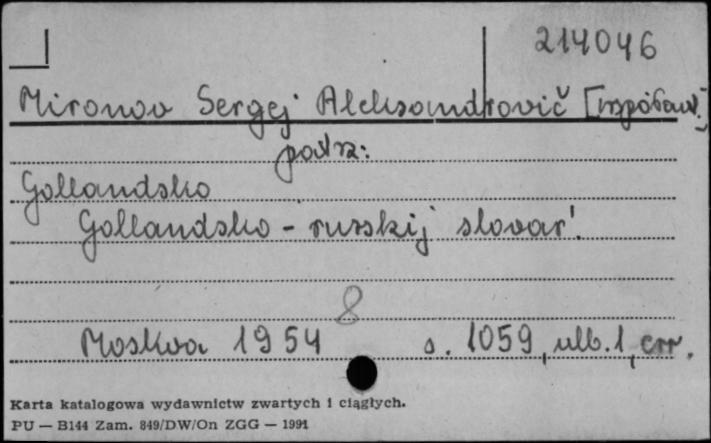 214046
Mironov Sergej Aleksandrovič [współaut.]
patrz:
Gollandsko
Gollandsko - russkij slovar'.
8
Moskva 1954 s. 1059, ulb. 1, err.
Karta katalogowa wydawnictw zwartych i ciągłych.
PU — B144 Zam. 849/DW/On ZGG — 1991